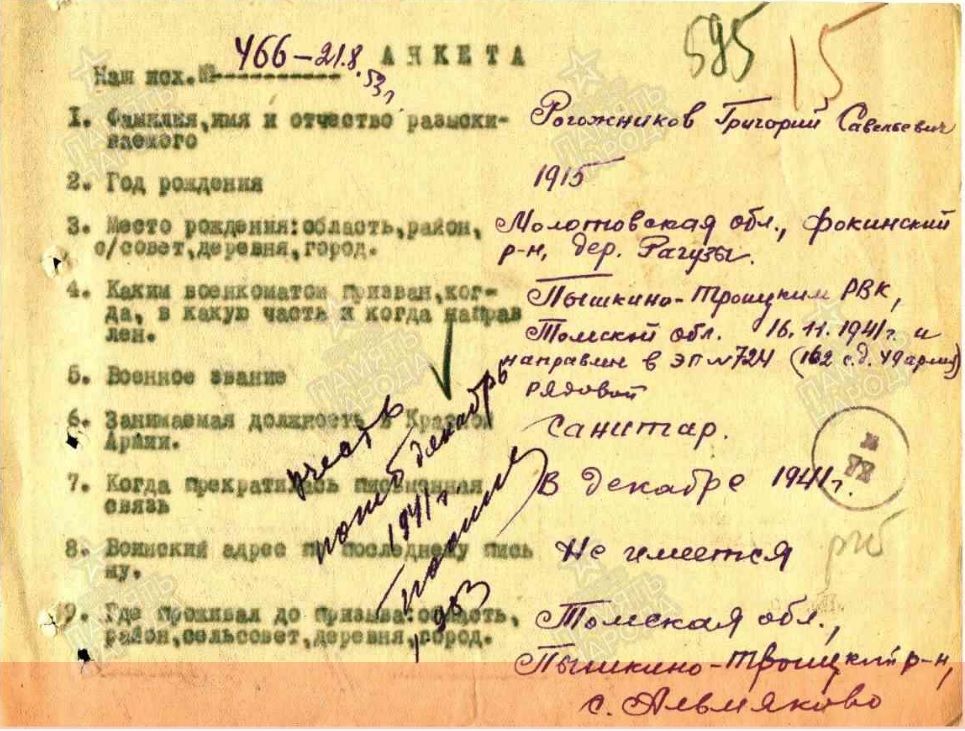 595 15
466-21.8.53г
АНКЕТА
Наш исх.№
1. Фамилия,имя и отчество разыски-
ваемого
Рогожников Григорий Савельевич
2. Год рождения
1915
3. Место рождения:область,район,
с/совет,деревня,город.
Молотовская обл., Фокинский
р-н, дер. Рагузы.
4. Каким военкоматом призван,ког-
да, в какую часть и когда направ
лен.
Пышкино-Троицким РВК,
Томской обл. 16.11.1941г. и
направлен в ЭП №724 (162 с.д. УдАрмия)
5. Военное звание
рядовой
6. Занимаемая должность в Красной
Армии.
Санитар.
7. Когда прекратилась письменная
связь
В декабре 1941г.
8. Воинский адрес по последнему пись
му.
Не имеется
9. Где проживал до призыва:область,
район,сельсовет,деревня,город.
Томская обл.,
Пышкино-Троицкий р-н,
с. Альмяково
учесть
погиб декабрь
1941г.
ПАМЯТЬ
НАРОДА